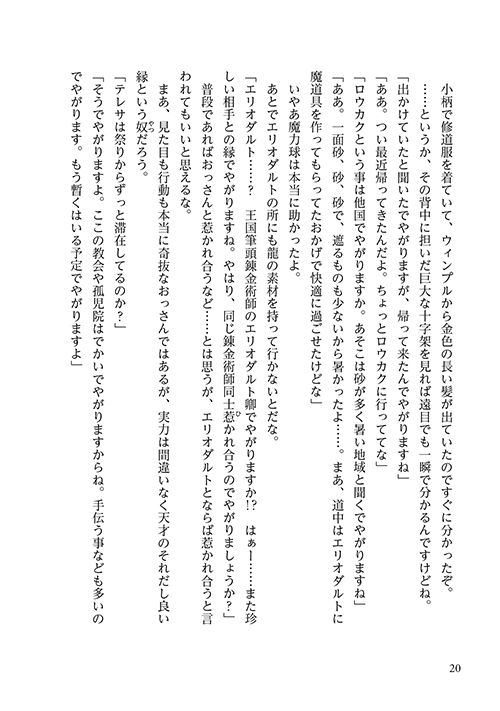 小柄で修道服を着ていて、ウィンプルから金色の長い髪が出ていたのですぐに分かったぞ。
……というか、その背中に担いだ巨大な十字架を見れば遠目でも一瞬で分かるんですけどね。
「出かけていたと聞いたでやがりますが、帰って来たんでやがりますね」
「ああ。つい最近帰ってきたんだよ。ちょっとロウカクに行っててな」
「ロウカクという事は他国でやがりますか。あそこは砂が多く暑い地域と聞くでやがりますね」
「ああ。一面砂、砂、砂で、遮るものも少ないから暑かったよ……。まあ、道中はエリオダルトに
魔道具を作ってもらってたおかげで快適に過ごせたけどな」
いやあ魔力球は本当に助かったよ。
あとでエリオダルトの所にも龍の素材を持って行かないとだな。
「エリオダルト……？　王国筆頭錬金術師のエリオダルト卿でやがりますか!?　はぁー……また珍
しい相手との縁でやがりますね。やはり、同じ錬金術師同士惹かれ合うのでやがりましょうか？」
普段であればおっさんと惹かれ合うなど……とは思うが、エリオダルトとならば惹かれ合うと言
われてもいいと思えるな。
まあ、見た目も行動も本当に奇抜なおっさんではあるが、実力は間違いなく天才のそれだし良い
縁という奴だろう。
「テレサは祭りからずっと滞在してるのか？」
「そうでやがりますよ。ここの教会や孤児院はでかいでやがりますからね。手伝う事なども多いの
でやがります。もう暫くはいる予定でやがりますよ」
20